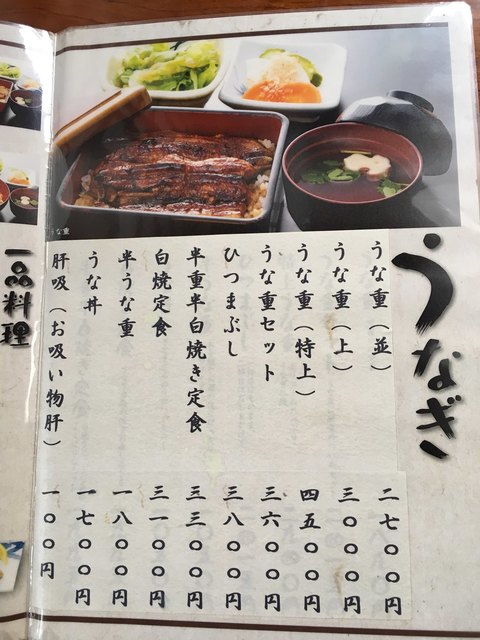 うなぎ
うな重（並）
うな重（上）
うな重（特上）
うな重セット
ひつまぶし
半重半白焼き定食
白焼定食
半うな重
うな丼
肝吸（お吸い物肝）
二七〇〇円
三〇〇〇円
四五〇〇円
三六〇〇円
三八〇〇円
三三〇〇円
三一〇〇円
一八〇〇円
一七〇〇円
一〇〇円
うな重
一品料理